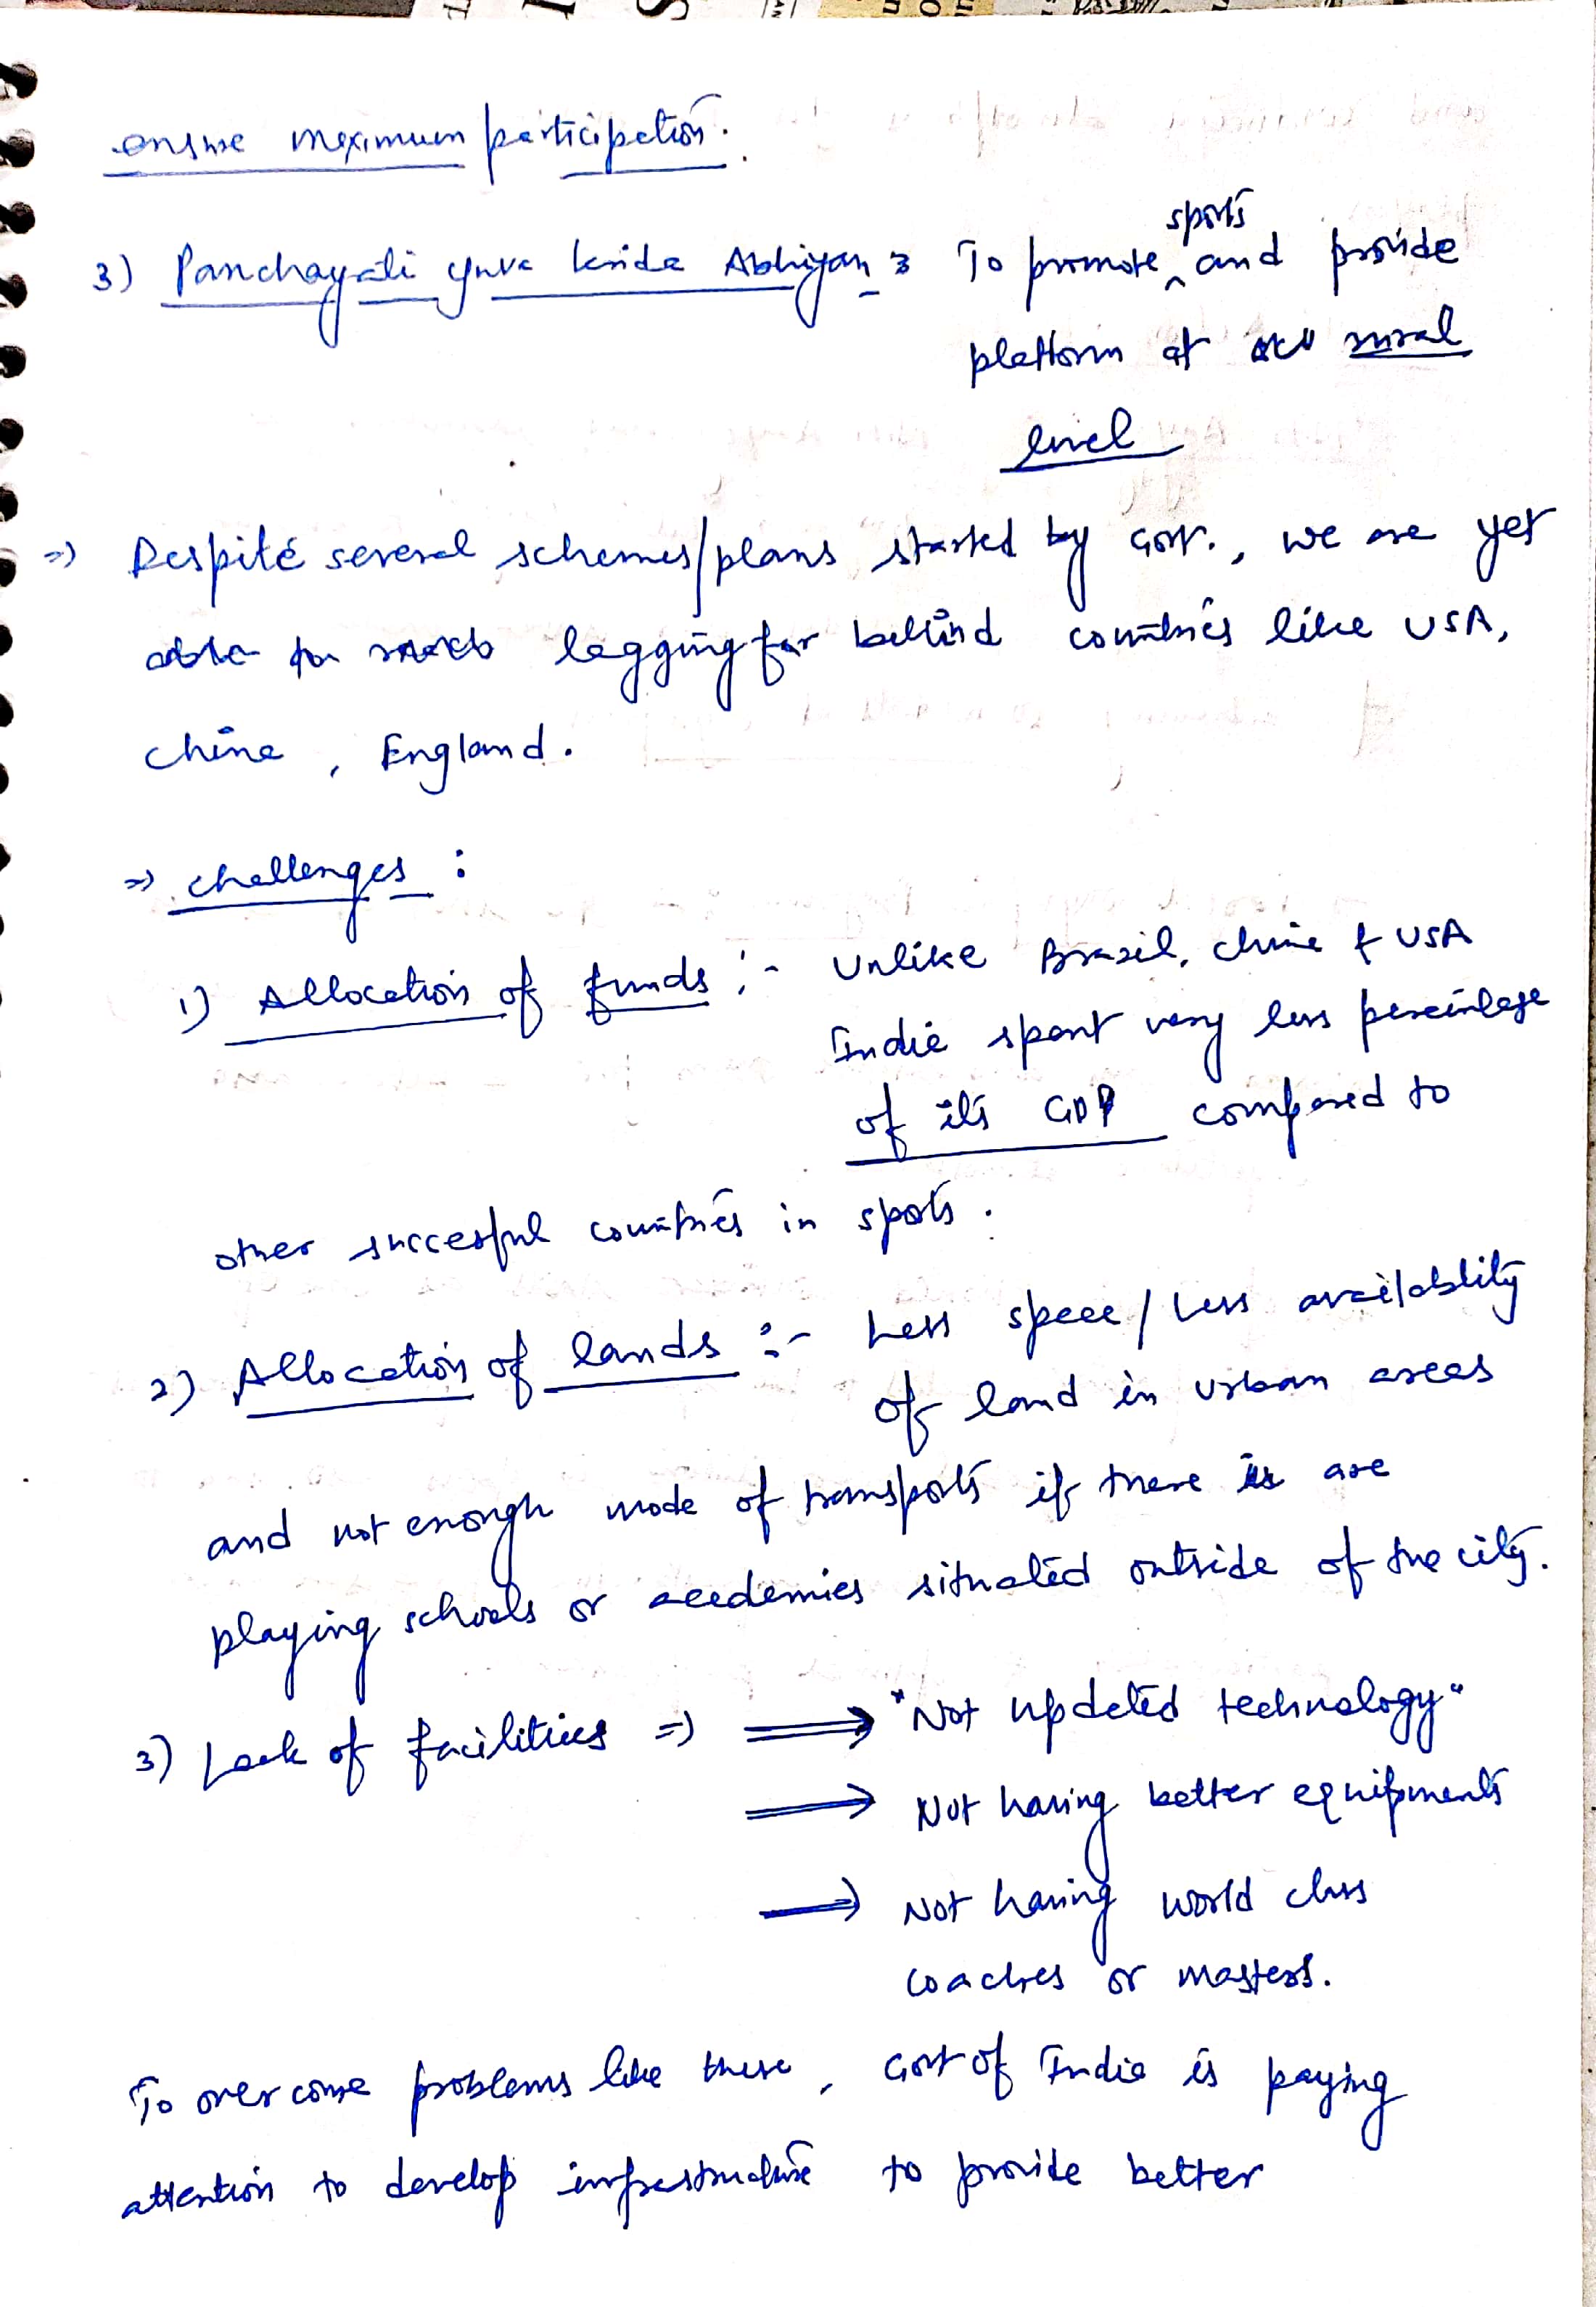 ensure maximum participation.
sports
3) Panchayati yuva krida Abhiyan : To promote ^ and provide
platform at rural
level
=) Despite several schemes/plans started by Govt., we are yet
lagging far behind countries like USA,
China, England.
=) challenges :
1) Allocation of funds :- Unlike Brazil, China & USA
India spent very less percentage
of its GDP compared to
other succesful countries in sports.
2) Allocation of lands :- Less space / Less availablity
of land in urban areas
and not enough mode of transports if there are
playing schools or acedemies situated outside of the city.
3) Lack of facilities =) ⟹ "Not updated technology"
⟹ Not having better equipments
⟹ Not having world class
coaches or masters.
To overcome problems like these, Govt of India is paying
attention to develop infrastructure to provide better